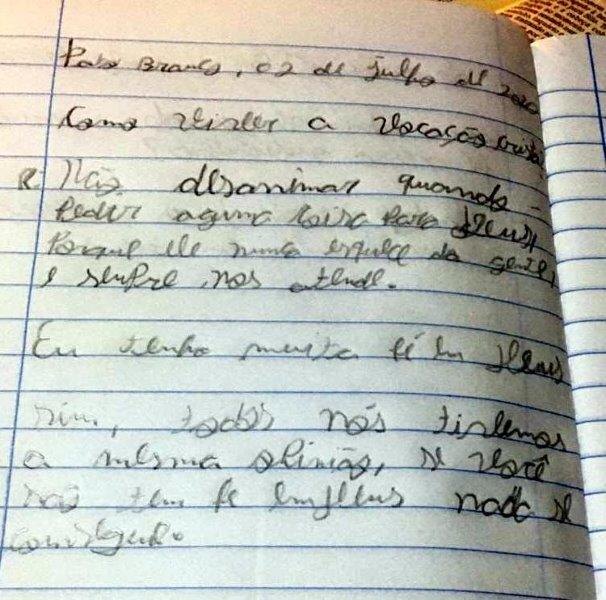 Pato Branco, 02 de julho de 2020
Como viver a vocação cristã
R Não desanimar quando
Pedir aguma coisa Para Deus,
Porque ele nunca esquece da gente,
e sempre nos atende.
Eu tenho muita fé em Deus
sim, todos nós tivemos
a mesma opinião, se você
não tem fé em Deus nada se
consegue.